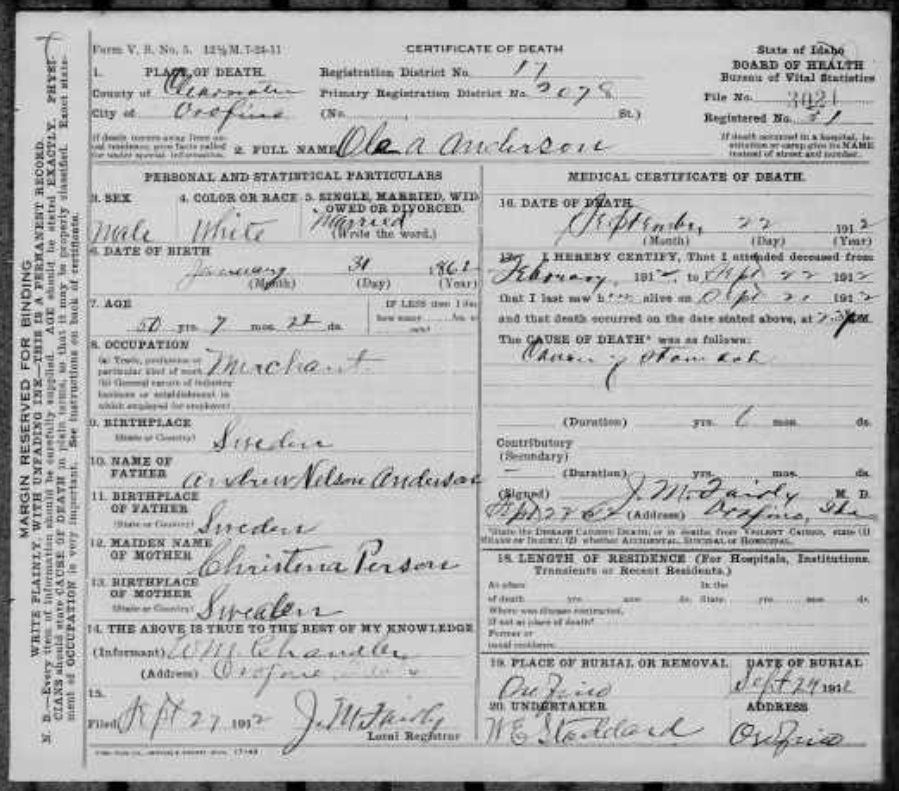 Form V. S. No. 5. 12½M. 7-24-11
CERTIFICATE OF DEATH
State of Idaho
BOARD OF HEALTH
Bureau of Vital Statistics
1. PLACE OF DEATH.
County of Clearwater
City of Orofino
Registration District No. 17
Primary Registration District No. 2078
(No. St.)
File No. 3021
Registered No. 31
If death occurs away from usual residence give facts called for under special information.
2. FULL NAME Ole A Anderson
If death occurred in a hospital, institution or camp give its NAME instead of street and number.
PERSONAL AND STATISTICAL PARTICULARS
3. SEX
Male
4. COLOR OR RACE
White
5. SINGLE, MARRIED, WIDOWED OR DIVORCED.
Married
(Write the word.)
6. DATE OF BIRTH
January 31 1862
(Month) (Day) (Year)
7. AGE
50 yrs. 7 mos. 22 ds.
IF LESS than 1 day
how many
8. OCCUPATION
(a) Trade, profession or particular kind of work Merchant
(b) General nature of industry
business or establishment in
which employed (or employer)
9. BIRTHPLACE
(State or Country) Sweden
10. NAME OF FATHER Andrew Nelson Anderson
11. BIRTHPLACE OF FATHER
(State or Country) Sweden
12. MAIDEN NAME OF MOTHER Christena Person
13. BIRTHPLACE OF MOTHER
(State or Country) Sweden
14. THE ABOVE IS TRUE TO THE BEST OF MY KNOWLEDGE
(Informant) W M Chandler
(Address) Orofino
15.
Filed Sept 27 1912 J. M Fairly
Local Registrar
MEDICAL CERTIFICATE OF DEATH.
16. DATE OF DEATH
September 22 1912
(Month) (Day) (Year)
17. I HEREBY CERTIFY, That I attended deceased from
February, 1912, to Sept 22 1912
that I last saw him alive on Sept 21 1912
and that death occurred on the date stated above, at M.
The CAUSE OF DEATH* was as follows:
Cancer of stomach
(Duration) yrs. 6 mos. ds.
Contributory
(Secondary)
(Duration) yrs. mos. ds.
(Signed) J. M Fairly M. D.
Sept 22 (Address) Orofino, Ida
*State the DISEASE CAUSING DEATH; or in deaths from VIOLENT CAUSES, state (1) MEANS OF INJURY; (2) whether ACCIDENTAL, SUICIDAL OR HOMICIDAL.
18. LENGTH OF RESIDENCE (For Hospitals, Institutions, Transients or Recent Residents.)
At place In the
of death yrs. mos. ds. State yrs. mos. ds.
Where was disease contracted,
if not at place of death?
Former or
usual residence
19. PLACE OF BURIAL OR REMOVAL
Orofino
DATE OF BURIAL
Sept 24 1912
20. UNDERTAKER
W E Stoddard
ADDRESS
Orofino
MARGIN RESERVED FOR BINDING
WRITE PLAINLY, WITH UNFADING INK—THIS IS A PERMANENT RECORD.
N. B.—Every item of information should be carefully supplied. AGE should be stated EXACTLY. PHYSICIANS should state CAUSE OF DEATH in plain terms, so that it may be properly classified. Exact statement of OCCUPATION is very important. See instructions on back of certificate.